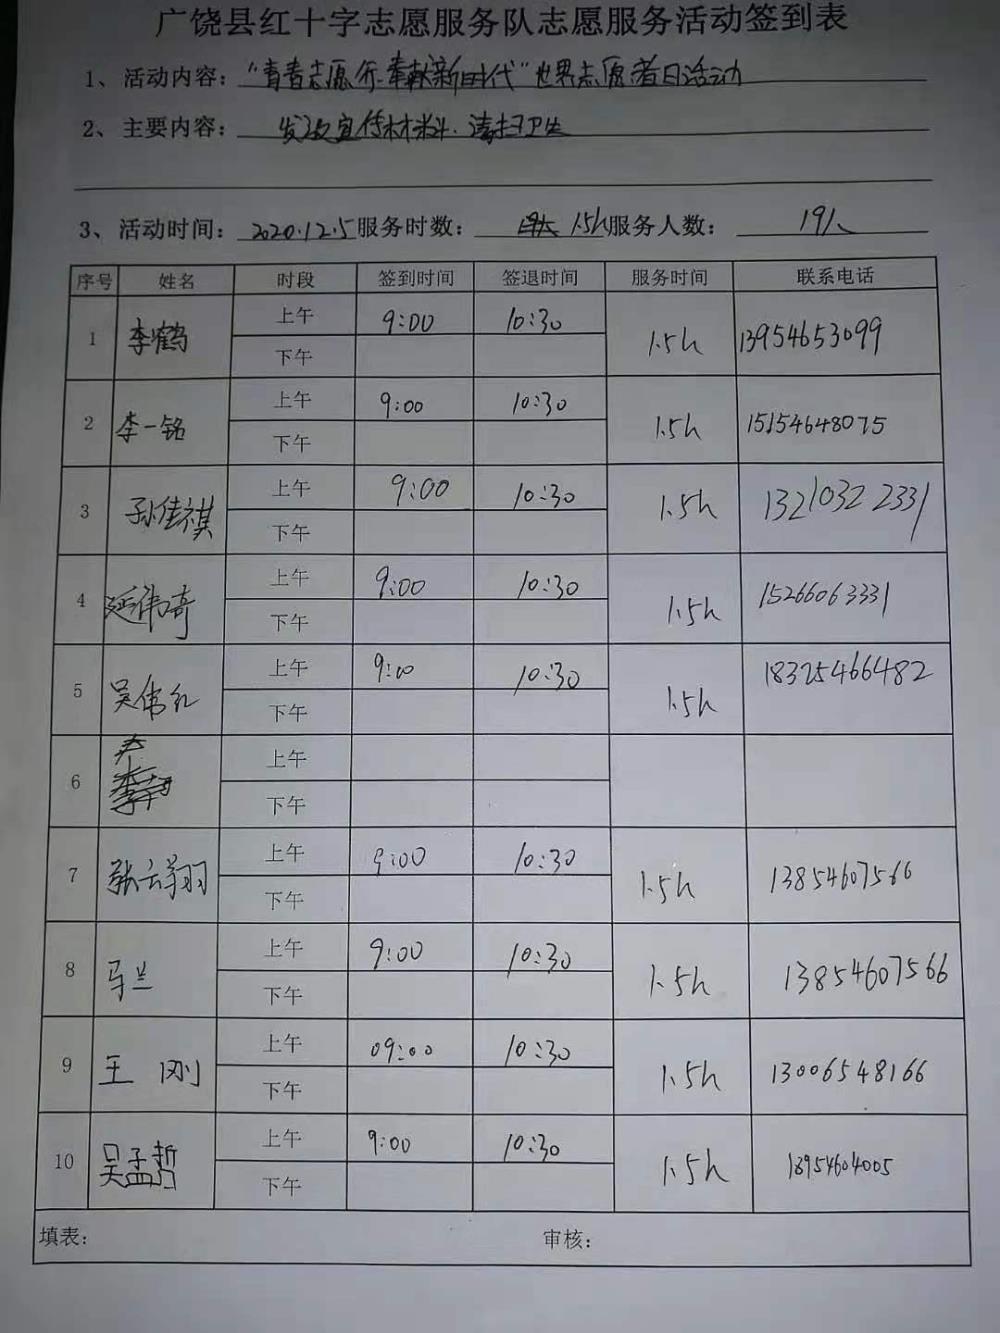 广饶县红十字志愿服务队志愿服务活动签到表
1、活动内容：“青春志愿行·奉献新时代”世界志愿者日活动
2、主要内容： 发放宣传材料、清扫卫生
3、活动时间：2020.12.5 服务时数： 1.5h 服务人数： 19人
序号 姓名 时段 签到时间 签退时间 服务时间 联系电话
1 李鹤 上午 9:00 10:30 1.5h 13954653099
下午
2 李一铭 上午 9:00 10:30 1.5h 15154648075
下午
3 孙佳祺 上午 9:00 10:30 1.5h 13210322331
下午
4 延伟奇 上午 9:00 10:30 1.5h 15266063331
下午
5 吴伟红 上午 9:00 10:30 1.5h 18325466482
下午
6 上午
下午
7 张云翔 上午 9:00 10:30 1.5h 13854607566
下午
8 马兰 上午 9:00 10:30 1.5h 13854607566
下午
9 王刚 上午 09:00 10:30 1.5h 13006548166
下午
10 吴孟哲 上午 9:00 10:30 1.5h 18954604005
下午
填表： 审核：